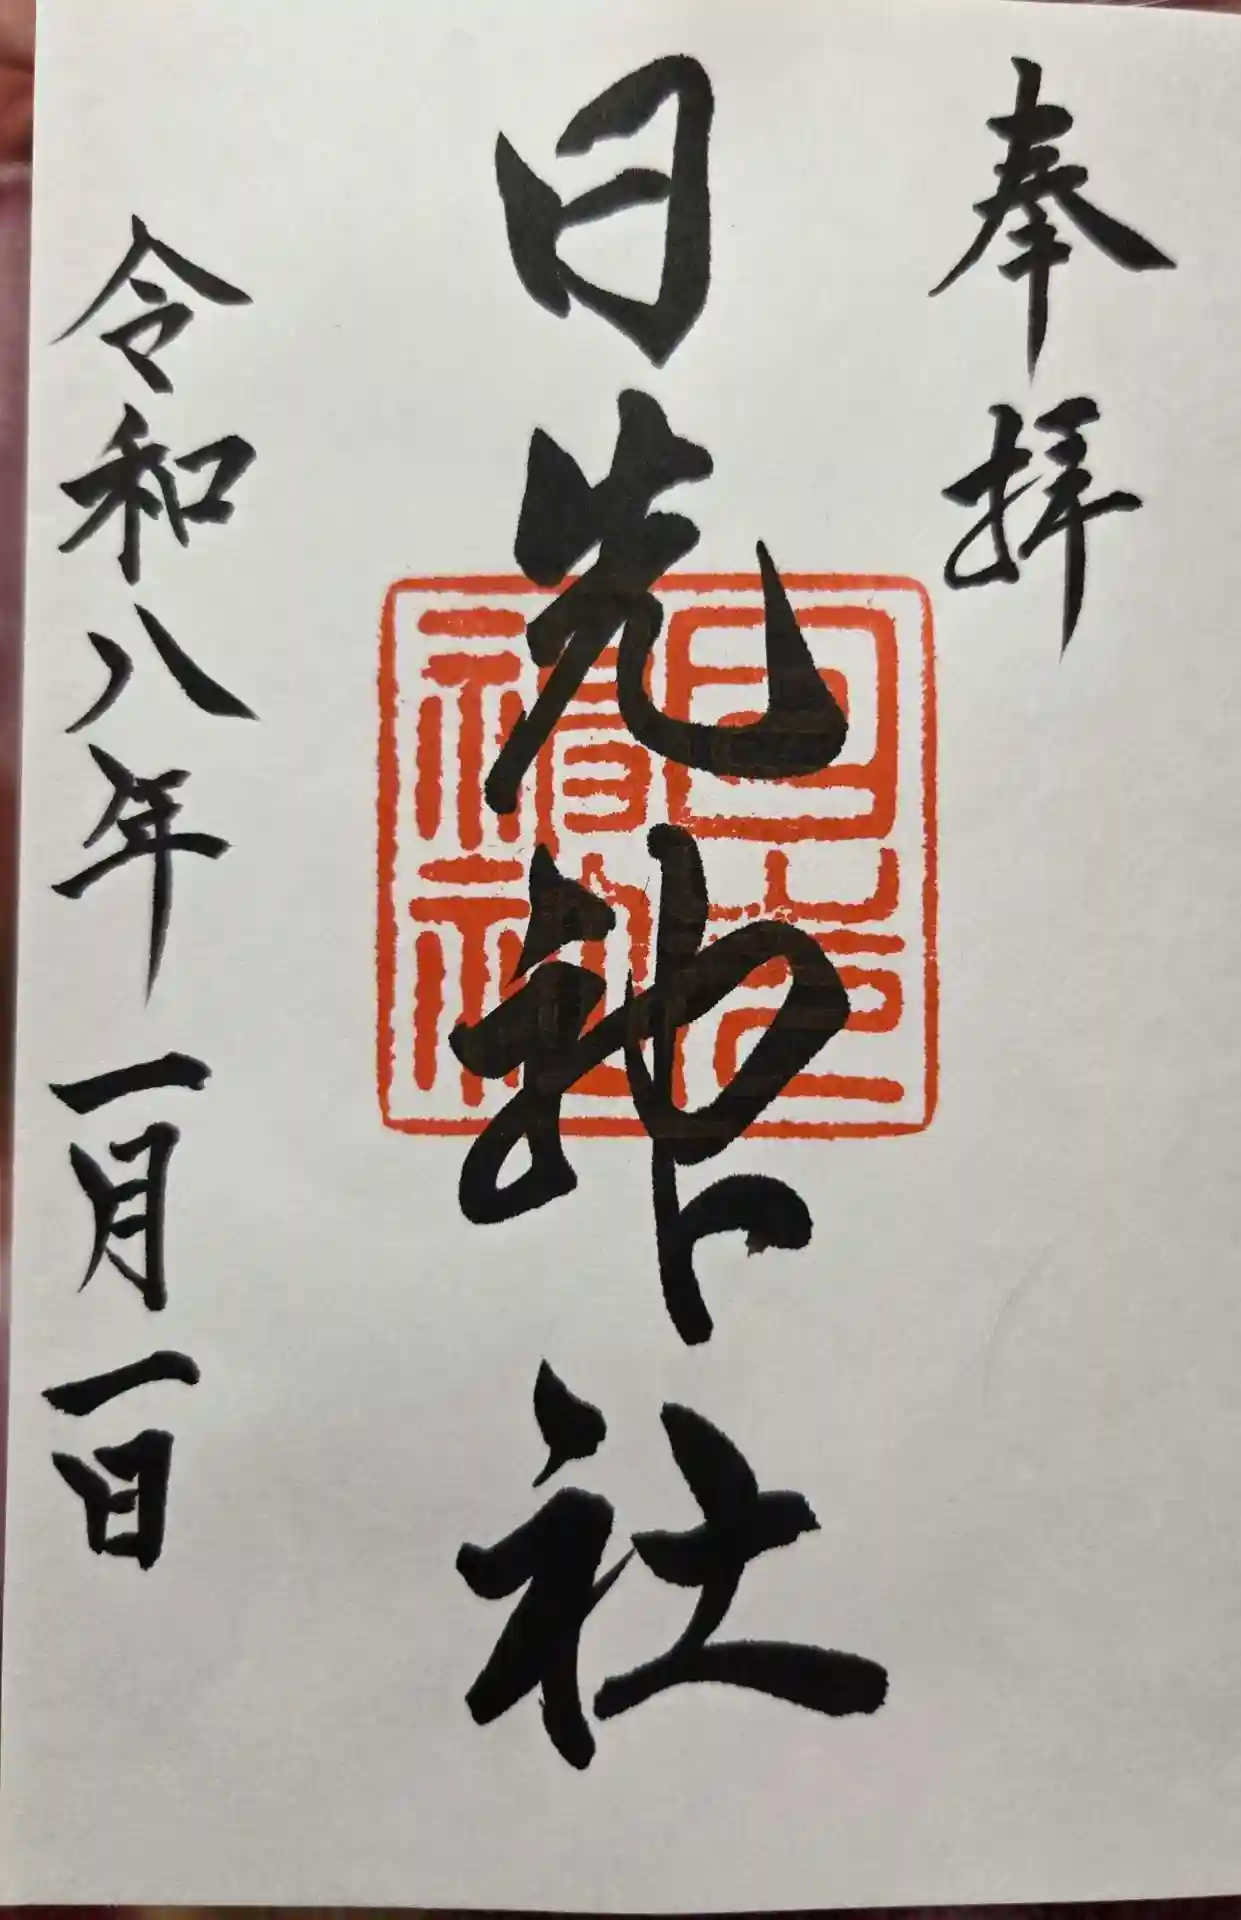 奉拝
日先神社
日先神社
令和八年 一月一日